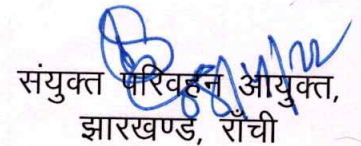 संयुक्त परिवहन आयुक्त,
झारखण्ड, राँची